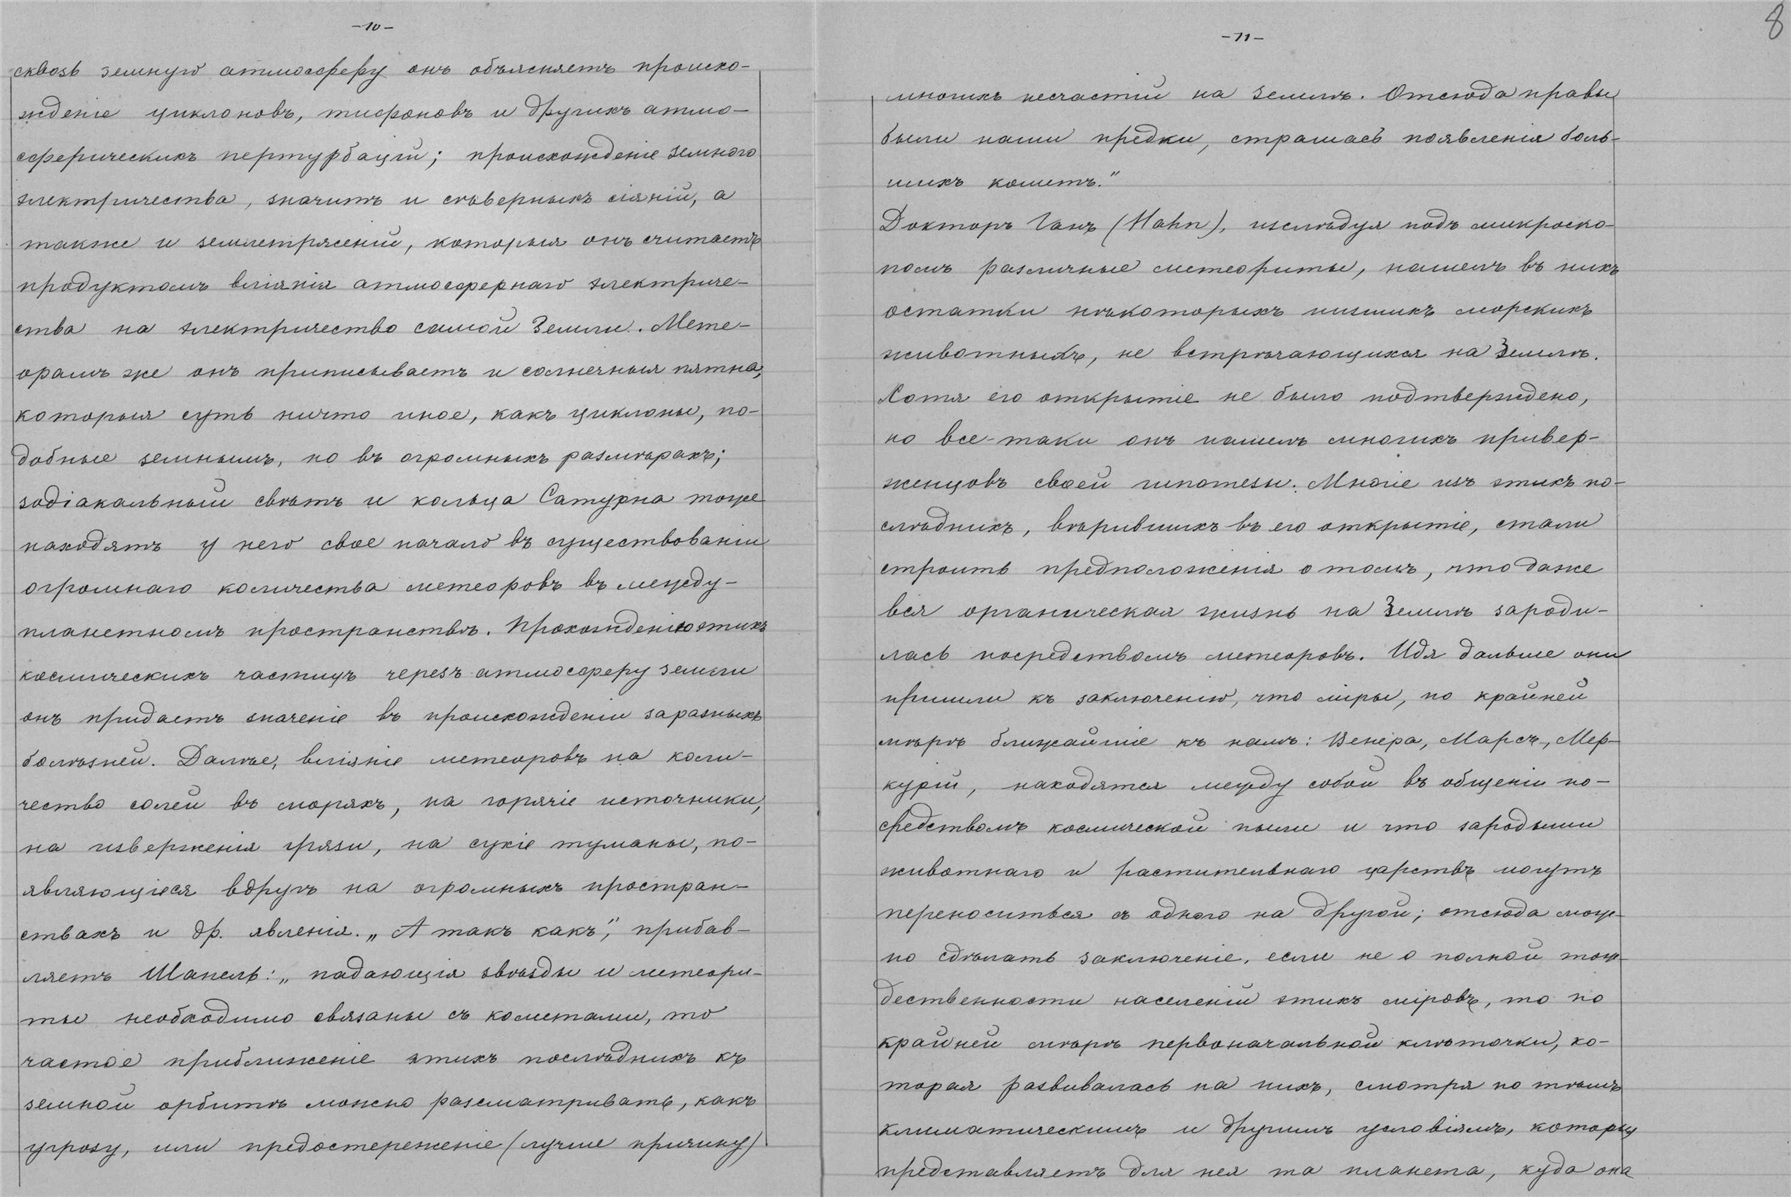 -10-
сквозь земную атмосферу онъ объясняетъ происхо-
жденіе циклоновъ, тифоновъ и другихъ атмо-
сферическихъ пертурбацій; происхожденіе земного
электричества, значитъ и сѣверныхъ сіяній, а
также и землетрясеній, которыя онъ считаетъ
продуктомъ вліянія атмосфернаго электриче-
ства на электричество самой Земли. Мете-
орамъ же онъ приписываетъ и солнечныя пятна,
которыя суть ничто иное, какъ циклоны, по-
добные земнымъ, но въ огромныхъ размѣрахъ;
зодіакальный свѣтъ и кольца Сатурна тоже
находятъ у него свое начало въ существованіи
огромнаго количества метеоровъ въ между-
планетномъ пространствѣ. Прохожденію этихъ
космическихъ частицъ черезъ атмосферу земли
онъ придаетъ значеніе въ происхожденіи заразныхъ
болѣзней. Далѣе, вліяніе метеоровъ на коли-
чество солей въ моряхъ, на горячіе источники,
на изверженія грязи, на сухіе туманы, по-
являющіеся вдругъ на огромныхъ простран-
ствахъ и др. явленія. „А такъ какъ", прибав-
ляетъ Шапель: „падающія звѣзды и метеори-
ты необходимо связаны съ кометами, то
частое приближеніе этихъ послѣднихъ къ
земной орбитѣ можно разсматривать, какъ
угрозу, или предостереженіе (лучше причину)
8
-11-
многихъ несчастій на землѣ. Отсюда правы
были наши предки, страшась появленія боль-
шихъ кометъ."
Докторъ Ганъ (Hahn), изслѣдуя подъ микроско-
помъ различные метеориты, нашелъ въ нихъ
остатки нѣкоторыхъ низшихъ морскихъ
животныхъ, не встрѣчающихся на Землѣ.
Хотя его открытіе не было подтверждено,
но все-таки онъ нашелъ многихъ привер-
женцовъ своей гипотезы. Многіе изъ этихъ по-
слѣднихъ, вѣрившихъ въ его открытіе, стали
строить предположенія о томъ, что даже
вся органическая жизнь на Землѣ зароди-
лась посредствомъ метеоровъ. Идя дальше они
пришли къ заключенію, что міры, по крайней
мѣрѣ ближайшіе къ намъ: Венера, Марсъ, Мер-
курій, находятся между собой въ общеніи по-
средствомъ космической пыли и что зародыши
животнаго и растительнаго царствъ могутъ
переноситься съ одного на другой; отсюда мож-
но сдѣлать заключеніе, если не о полной тож-
дественности населеній этихъ міровъ, то по
крайней мѣрѣ первоначальной клѣточки, ко-
торая развивалась на нихъ, смотря по тѣмъ
климатическимъ и другимъ условіямъ, которыя
представляетъ для нея та планета, куда она